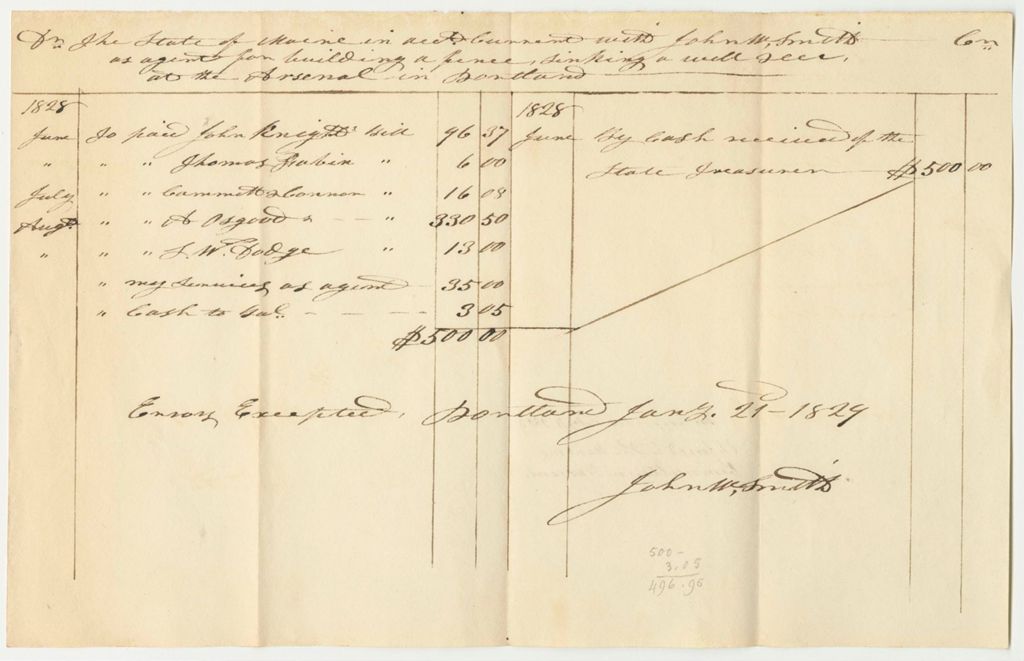 Dr. The State of Maine in acct. Current with John W. Smith Cr.
as agent for building a fence, sinking a well &c.
at the Arsenal in Portland
1828
June To paid John Knights Bill 96 37
" " " Thomas Rabin " 6 00
July " " Cammett & Connor " 16 08
Augt. " " A Osgood " 330 50
" " " J. W. Dodge " 13 00
" my services as agent 35 00
" Cash to bal. 3 05
$500 00
1828
June By Cash received of the
State Treasurer $500 00
Errors Excepted, Portland Jany. 21 - 1829
John W. Smith
500 -
3.05
496.95